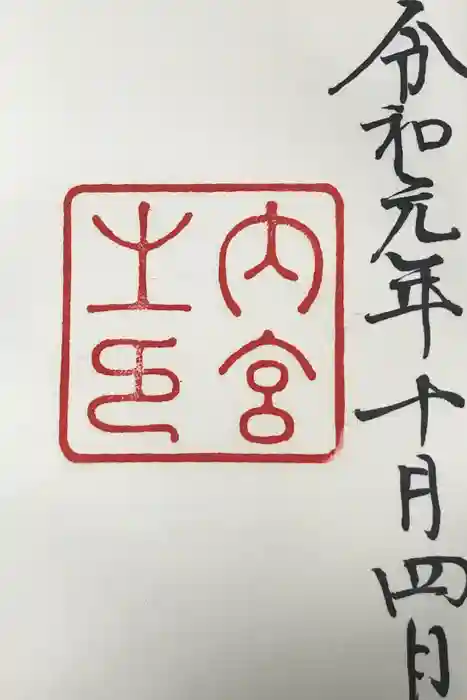 令和元年十月四日
内宮
之印